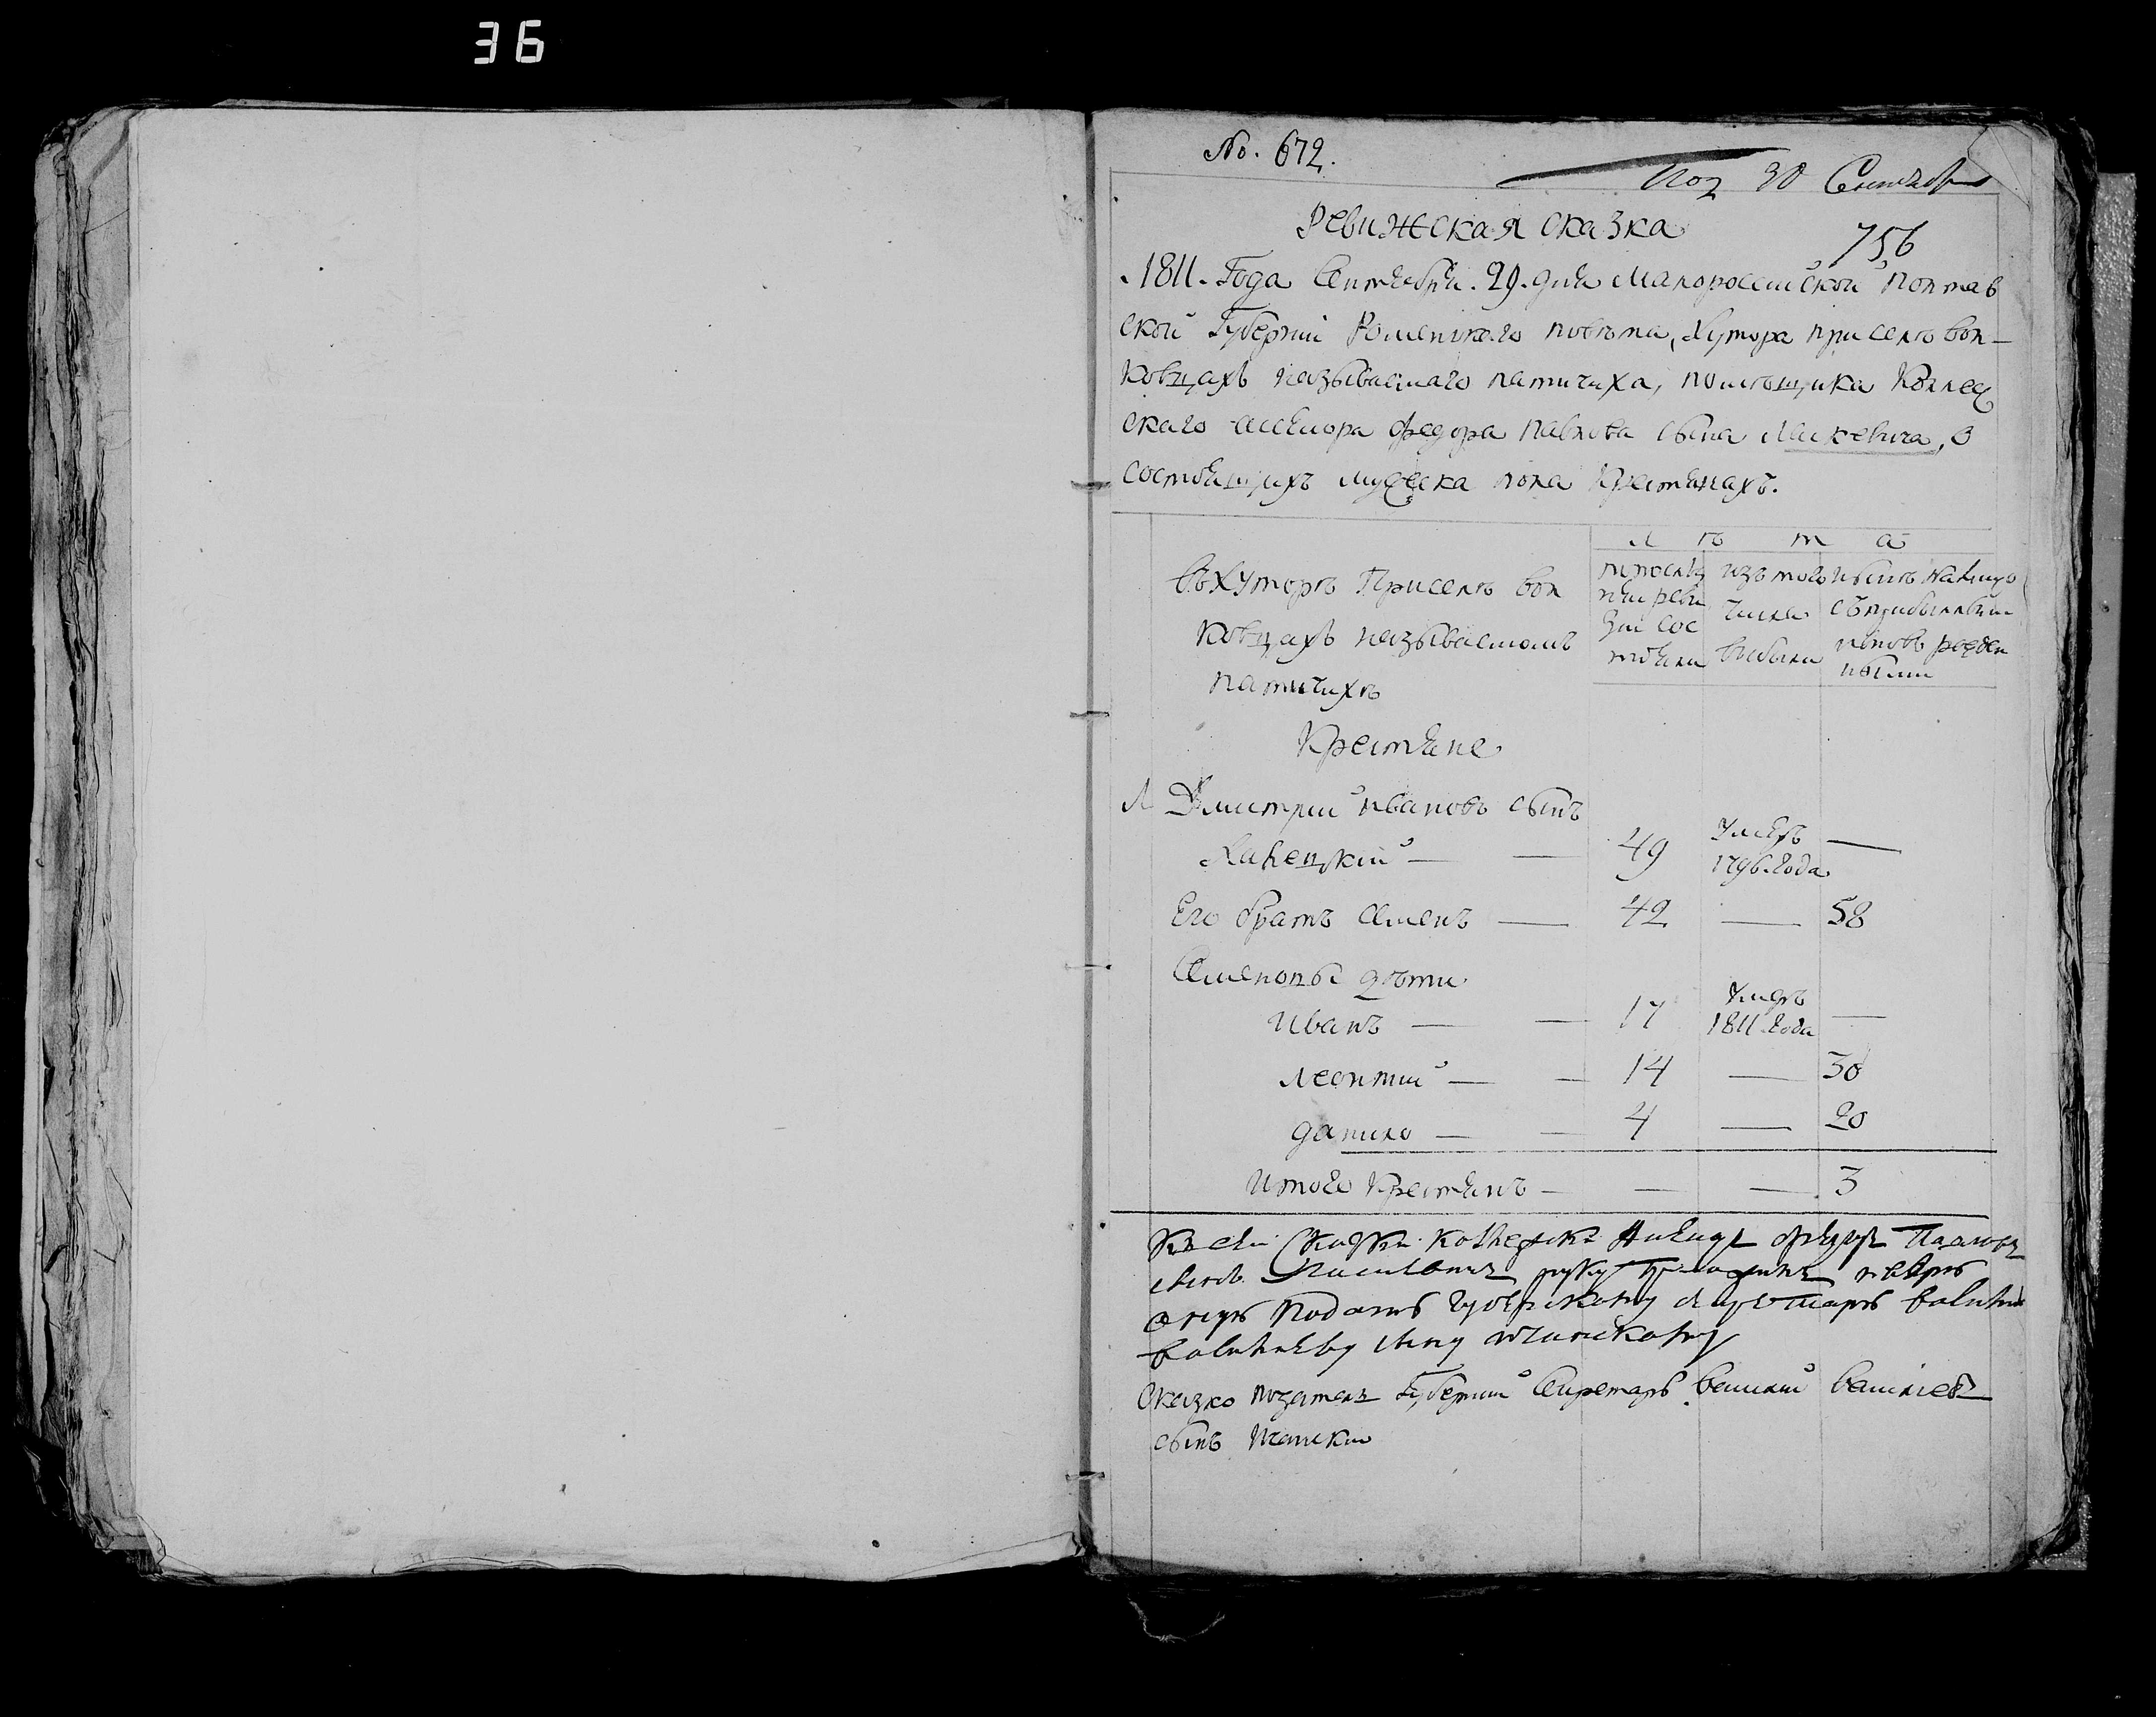 36
No. 672.
Под 30 Сентября
Ревижская сказка
756
1811. Года Сентября. 29. дня Малороссийской Полтав
ской Губернии Роменского повѣта, Хутора при селѣ вол-
ковцахъ называемаго патичиха, помѣщика Коллеж
скаго ассесора федора павлова сына Маркевича, о
состоящихъ мужеска пола Крестянахъ.
Л ѣ т а
въ Хуторѣ При селѣ вол
ковцахъ называемомъ
патичихѣ
по послѣд
ней реви
зіи сос
тояли
изъ того
числа
выбыли
нынѣ налицо
съ прибылыми
и вновь рожден
ными
Крестяне
1 Дмитрий ивановъ сынъ
Ханецкий — — 49 Умеръ 1796. года —
Его братъ семенъ — 42 — 58
Семеновы дѣти
иванъ — — 17 Умеръ 1811. года —
леонтий — — 14 — 30
данило — — 4 — 20
итого Крестянъ — — — 3
К сей Скаски
руку
подать губернскому секретарю василию
васильеву сину
Сказко подателъ Губерний Секретарь василий василиевъ
сынъ